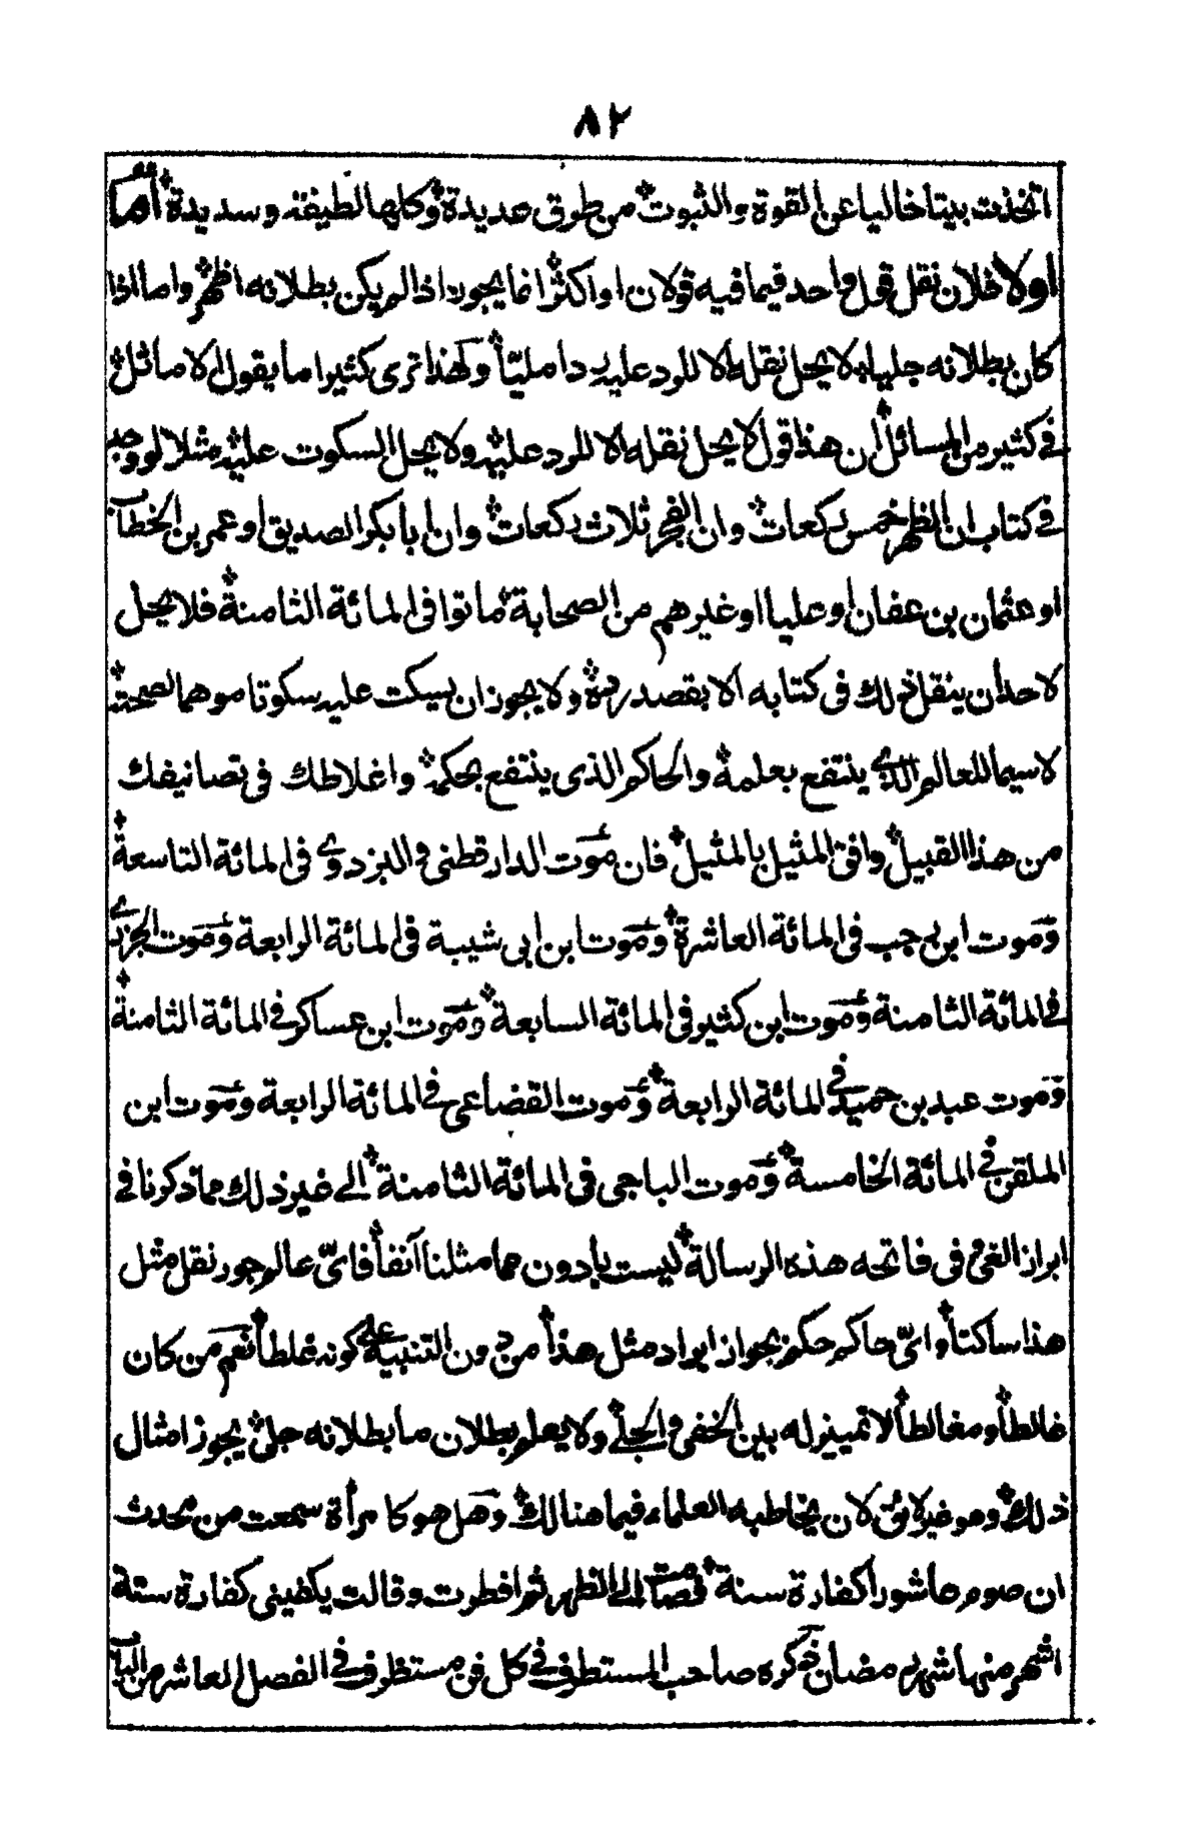 ٨٢
اتخذت بيتا خاليا عن القوة والثبوت من طرق عديدة وكلها لطيفة وسديدة أما
اولا فلان نقل قول واحد فيما فيه قولان او اكثر انما يجوز اذا لم يكن بطلانه اظهر واما اذا
كان بطلانه جليا فلا يحل نقله الا للرد عليه ردا مليّا ولهذا ترى كثيرا ما يقول الاماثل
في كثير من المسائل ان هذا قول لا يحل نقله الا للرد عليه ولا يحل السكوت عليه مثلا لو وجد
في كتاب ان الظهر خمس ركعات وان الفجر ثلاث ركعات وان ابا بكر الصديق او عمر بن الخطاب
او عثمان بن عفان او عليا او غيرهم من الصحابة ماتوا فى المائة الثامنة فلا يحل
لاحد ان ينقل ذلك فى كتابه الا بقصد رده ولا يجوز ان يسكت عليه سكوتا موهما لصحته
لا سيما للعالم الذى ينتفع بعلمه والحاكم الذى ينتفع بحكمه واغلاطك فى تصانيفك
من هذا القبيل وافق المثيل بالمثيل فان موت الدارقطنى والبزدوى فى المائة التاسعة
وموت ابن رجب فى المائة العاشرة وموت ابن ابى شيبة فى المائة الرابعة وموت الجزرى
فى المائة الثامنة وموت ابن كثير فى المائة السابعة وموت ابن عساكر فى المائة الثامنة
وموت عبد بن حميد فى المائة الرابعة وموت القضاعى فى المائة الرابعة وموت ابن
الملقن فى المائة الخامسة وموت الباجى فى المائة الثامنة الى غير ذلك مما ذكرنا فى
ابراز الغى فى فاتحه هذه الرسالة ليست بادون مما مثلنا آنفا فاىّ عالم جوز نقل مثل
هذا ساكتا واىّ حاكم حكم بجواز ايراد مثل هذا من دون التنبيه على كونه غلطا نعم من كان
غالطا ومغالطا لا تمييز له بين الخفى والجلى ولا يعلم بطلان ما بطلانه جلى يجوز امثال
ذلك وهو غير لائق لان يخاطبه العلماء فيما هنالك وهل هو كامرأة سمعت من محدث
ان صوم عاشورا كفارة سنة فصامت الى الظهر ثم افطرت وقالت يكفينى كفارة ستة
اشهر منها شهر رمضان ذكره صاحب المستطرف فى كل فن مستظرف فى الفصل العاشر من الباب